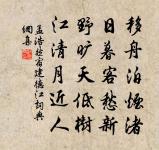 移舟泊煙渚
日暮客愁新
野旷天低樹
江清月近人
孟浩然宿建德江詞典
網集